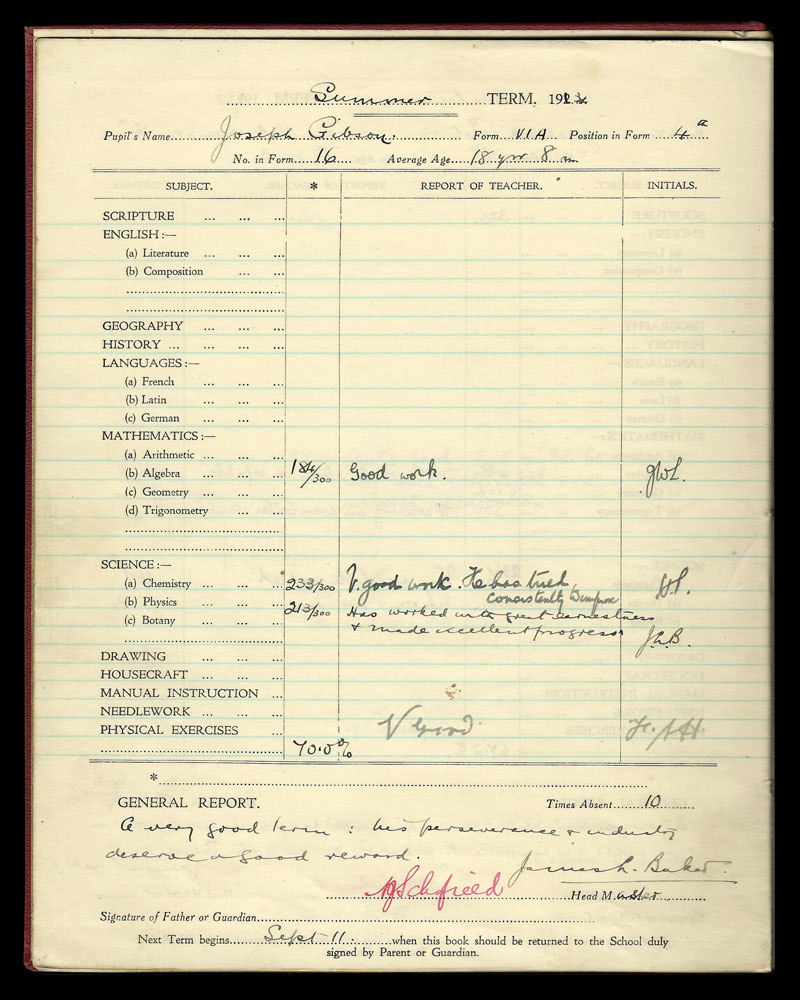 Summer TERM, 19
Pupil's Name Joseph Gibson. Form VIA Position in Form 4 a
No. in Form 16 Average Age 18 yrs 8 m
SUBJECT. * REPORT OF TEACHER. INITIALS.
SCRIPTURE ... ... ...
ENGLISH :—
(a) Literature ... ... ...
(b) Composition ... ...
GEOGRAPHY ... ... ...
HISTORY ... ... ... ...
LANGUAGES :—
(a) French ... ... ...
(b) Latin ... ... ...
(c) German ... ... ...
MATHEMATICS :—
(a) Arithmetic ... ... ...
(b) Algebra ... ... ... 184/300 Good work. JWL.
(c) Geometry ... ... ...
(d) Trigonometry ... ...
SCIENCE :—
(a) Chemistry ... ... ... 233/300 V. good work. He has tried
consistently to improve
(b) Physics ... ... ... 213/300 Has worked with great earnestness
(c) Botany ... ... ... & made excellent progress J.A.B.
DRAWING ... ... ...
HOUSECRAFT ... ... ...
MANUAL INSTRUCTION ...
NEEDLEWORK ... ... ...
PHYSICAL EXERCISES ... V Good
70.0%
*
GENERAL REPORT. Times Absent 10
A very good term : his perseverance & industry
deserve a good reward. James h. Baker.
Schofield Head Master
Signature of Father or Guardian
Next Term begins Sept 11. when this book should be returned to the School duly
signed by Parent or Guardian.